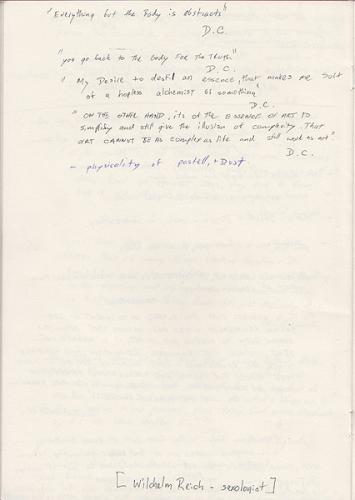 "Everything but the Body is abstracts"
D.C.
"you go back to the body FOR the TRUTH."
D.C.
" My Desire to distil an essence, that makes me sort
of a hopless alchemist of something"
D.C.
" ON THE OTHER HAND, its of the ESSENCE OF ART TO
simplify and still give the illusion of complexity. That
ART CANNOT BE AS complex as life and still work as art".
D.C.
- physicality of pastell, + Dust
[ Wildhelm Reich - sexologist ]